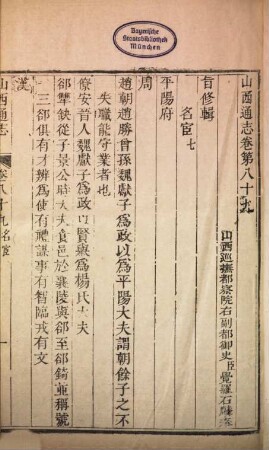 Bayerische
Staatsbibliothek
München
山西通志卷第八十九
山西巡撫都察院右副都御史臣覺羅石麟奉
旨修輯
名宦七
平陽府
周
趙朝道勝曾孫魏獻子為政以為平陽大夫謂朝餘子之不
失職能守業者也
僚安晉人魏獻子為政以賢與為楊氏大夫
郤犫缺從子景公時大夫食邑於襄陵與郤至郤錡並稱號
三郤俱有才辨為使有禮謀事有智臨戎有文
漢
山西通志
卷八十九名宦